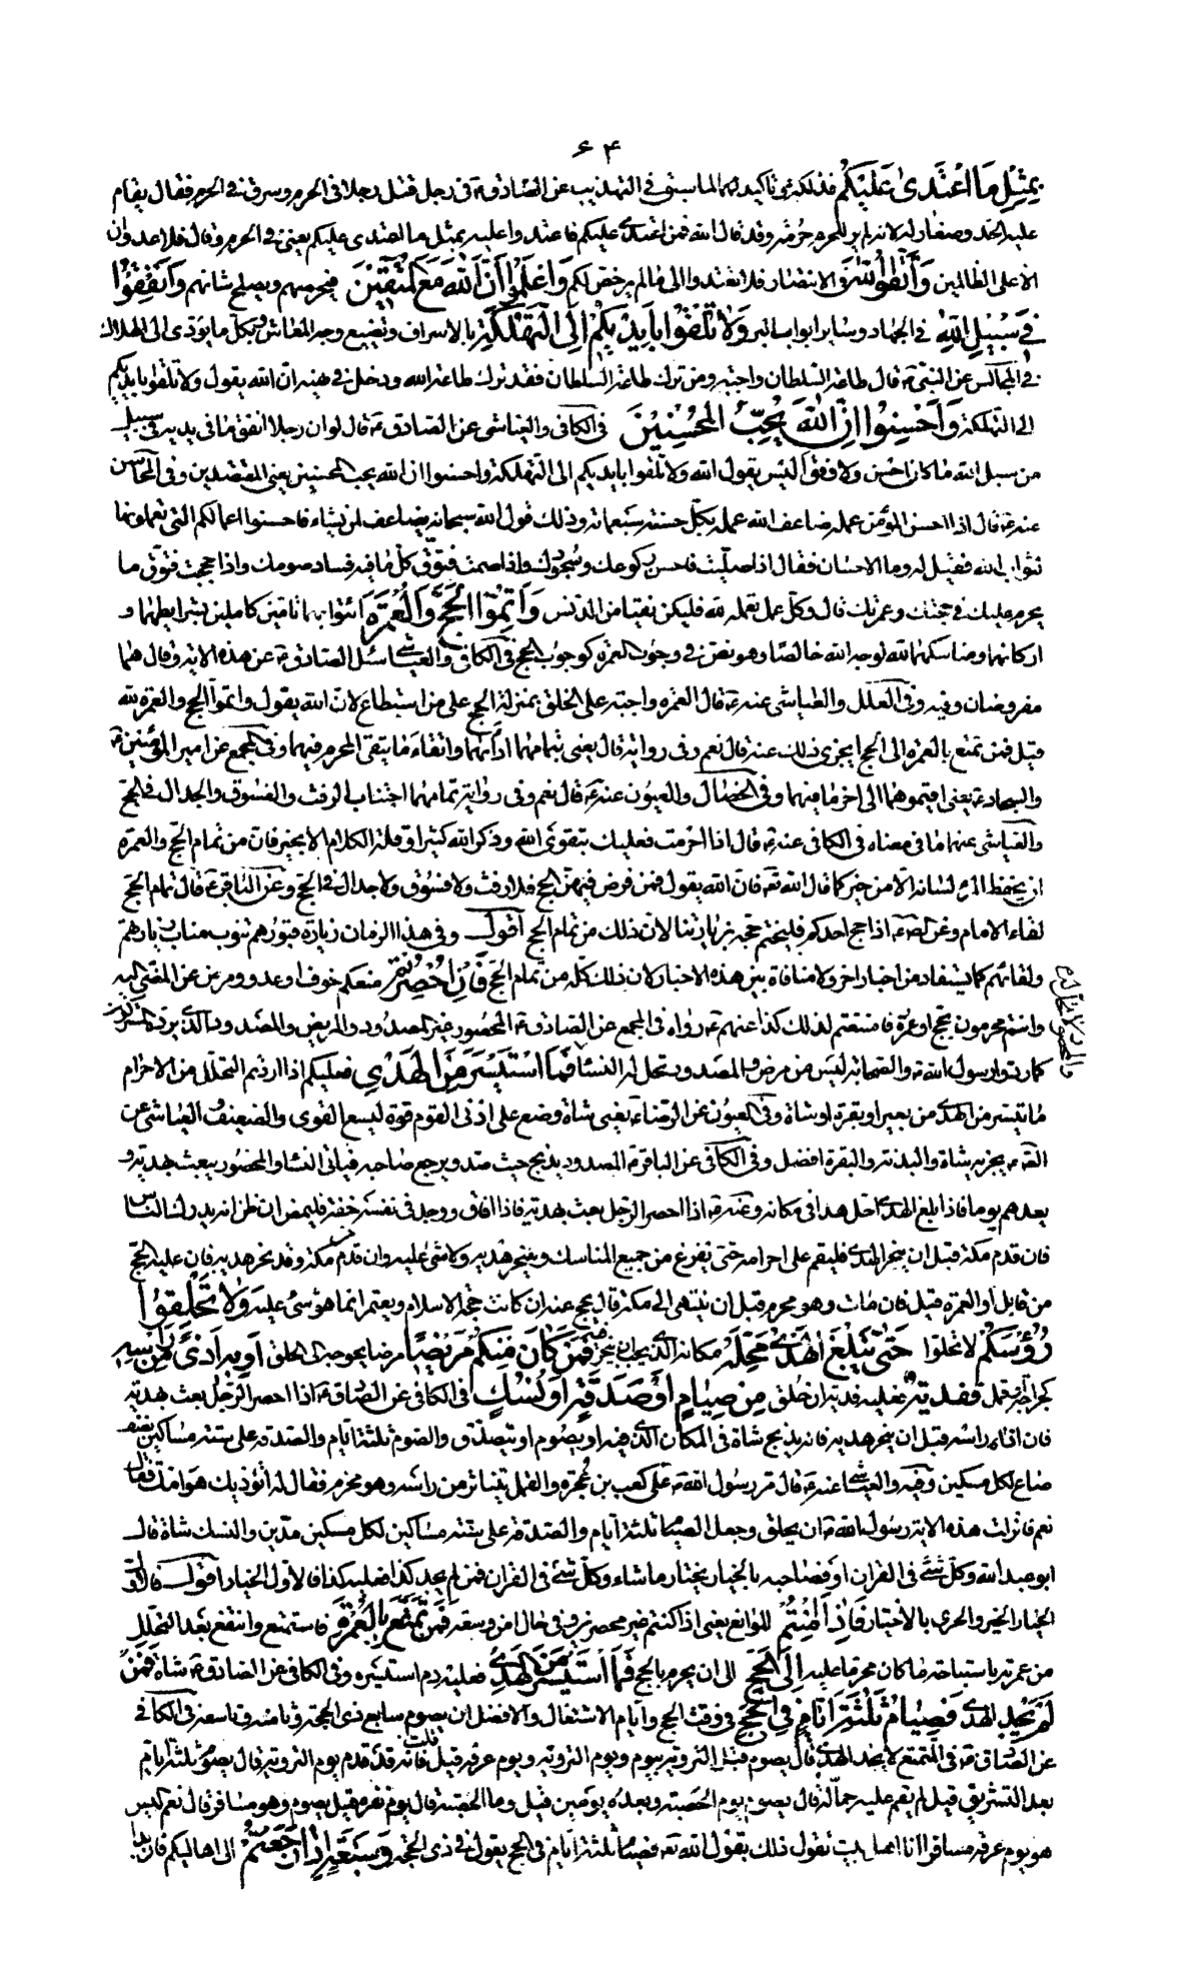 ۶۴
بِمِثْلِ مَا اعْتَدىٰ عَلَيْكُمْ فذلكة وتاكيد لهما لما سبق فى التهذيب عن الصّادق ع فى رجل قتل رجلا فى الحرم وسرق فى الحرم فقال يقام
عليه الحدّ وصغار له لانه لم ير للحرم حُرمة وقد قال الله فمن اعتدى عليكم فاعتدوا عليه بمثل ما اعتدى عليكم يعنى فى الحرم وقال فلا عدوان
الا على الظالمين وَاتَّقُوا اللهَ فى الانتصار فلا تعتدوا الى ما لم يرخص لكم وَاعْلَمُوا اَنَّ اللهَ مَعَ الْمُتَّقِيْنَ فيحرسهم ويصلح شانهم وَاَنْفِقُوْا
فِى سَبِيْلِ اللهِ فى الجهاد وساير ابواب البر وَلَا تُلْقُوْا بِاَيْدِيْكُمْ اِلَى التَّهْلُكَةِ بالاسراف وتضييع وجه المعاش وبكل ما يؤدى الى الهلاك
فى المجالس عن النبى ص قال طاعة السلطان واجبة ومن ترك طاعة السلطان فقد ترك طاعة الله ودخل فى نهيه ان الله يقول ولا تلقوا بايديكم
الى التهلكة وَاَحْسِنُوْا اِنَّ اللهَ يُحِبُّ الْمُحْسِنِيْنَ فى الكافى والعياشى عن الصادق ع قال لو ان رجلا انفق ما فى يديه فى سبيل
من سبيل الله ما كان احسن ولا وفق اليس يقول الله ولا تلقوا بايديكم الى التهلكة واحسنوا ان الله يحب المحسنين يعنى المقتصدين وفى المحاسن
عنه ع قال اذا احسن المؤمن عمله ضاعف الله عمله بكل حسنة سبعمائة وذلك قول الله سبحانه يضاعف لمن يشاء فاحسنوا اعمالكم التى تعملونها
لثواب الله فقيل له وما الاحسان فقال اذا صليت فاحسن ركوعك وسجودك واذا صمت فتوق كل ما فيه فساد صومك واذا حججت فتوق ما
يحرم عليك فى حجك وعمرتك قال وكل عمل تعمله لله فليكن نقيا من الدنس وَاَتِمُّوا الْحَجَّ وَالْعُمْرَةَ ائتوا بهما تامّين كاملين بشرايطهما و
اركانهما ومناسكهما لله لوجه الله خالصًا وهو نص فى وجوب العمرة كوجوب الحج فى الكافى والعياشى سئل الصادق ع عن هذه الاية فقال هما
مفروضان وفيه وفى العلل والعياشى عنه ع قال العمرة واجبة على الخلق بمنزلة الحج على من استطاع لان الله يقول واتموا الحج والعمرة لله
قيل فمن تمتع بالعمرة الى الحج ايجزى ذلك عنه قال نعم وفى رواية قال يعنى بتمامهما اداءهما واتقاء ما يتقى المحرم فيهما وفى المجمع عن امير المؤمنين ع
والسجاد ع يعنى اقيموهما الى اخر ما فيهما وفى الخصال والعيون عنه ع قال نعم وفى رواية تمامهما اجتناب الرفث والفسوق والجدال فى الحج
والعياشى عنهما ما فى معناه فى الكافى عنه ع قال اذا احرمت فعليك بتقوى الله وذكر الله كثيرا وقلة الكلام الا بخير فان من تمام الحج والعمرة
ان يحفظ المرء لسانه الا من خير كما قال الله تع فان الله يقول فمن فرض فيهن الحج فلا رفث ولا فسوق ولا جدال فى الحج وعن الباقر ع قال تمام الحج
لقاء الامام وعن الص ع اذا حج احدكم فليختم حجه بزيارتنا لان ذلك من تمام الحج اقول وفى هذا الزمان زيارة قبورهم تنوب مناب زيارتهم
ولقائهم كما يستفاد من اخبار اخر ولا منافاة بين هذه الاخبار لان ذلك كله من تمام الحج فَاِنْ اُحْصِرْتُمْ منعكم خوف او عدو ومرض عن المضى اليه
وانتم محرمون بحج او عمرة فامتنعتم لذلك كذا عنهم ع رواه فى المجمع عن الصادق ع المحصور غير المصدود والمريض والمصدود الذى يرده المشركون
كما ردوا رسول الله ص والصحابة ليس من مرض والمصدود تحل له النساء فَمَا اسْتَيْسَرَ مِنَ الْهَدْيِ فعليكم اذا اردتم التحلل من الاحرام
ما تيسر من الهدى من بعير او بقرة او شاة وفى العيون عن الرضا ع يعنى شاة وضع على ادنى القوم قوة ليسع القوى والضعيف العياشى عن
الص ع يجزيه شاة والبدنة والبقرة افضل وفى الكافى عن الباقر ع المصدود يذبح حيث صد ويرجع صاحبه فياتى النساء والمحصور يبعث بهديه و
يعدهم يوما فاذا بلغ الهدى احل هذا فى مكانه وعنه ع اذا احصر الرجل بعث بهديه فاذا افاق ووجد فى نفسه خفة فليمض ان ظن انه يدرك الناس
فان قدم مكة قبل ان ينحر الهدى فليقم على احرامه حتى يفرغ من جميع المناسك وينحر هديه ولا شئ عليه وان قدم مكة وقد نحر هديه فان عليه الحج
من قابل او العمرة قيل فان مات وهو محرم قبل ان ينتهى الى مكة قال يحج عنه ان كانت حجة الاسلام ويعتمر انما هو شئ عليه وَلَا تَحْلِقُوْا
رُؤُسَكُمْ لا تحلوا حَتّٰى يَبْلُغَ الْهَدْىُ مَحِلَّهُ مكانه الذى يجب ان ينحر فيه فَمَنْ كَانَ مِنْكُمْ مَرِيْضًا مرضا يحوجه الى الحلق اَوْ بِهِ اَذًى مِنْ رَاْسِهِ
كجراحة وقمل فَفِدْيَةٌ فعليه فدية ان حلق مِنْ صِيَامٍ اَوْ صَدَقَةٍ اَوْ نُسُكٍ فى الكافى عن الصادق ع اذا احصر الرجل بعث بهديه
فان اذاه راسه قبل ان ينحر هديه فانه يذبح شاة فى المكان الذى فيه او يصوم او يتصدق والصوم ثلثة ايام والصدقة على ستة مساكين نصف
صاع لكل مسكين وفيه والعياشى عنه ع قال مر رسول الله ص على كعب بن عجرة والقمل يتناثر من راسه وهو محرم فقال له اتؤذيك هوامك فقال
نعم فانزلت هذه الاية رسول الله ص ان يحلق وجعل الصيام ثلثة ايام والصدقة على ستة مساكين لكل مسكين مدين والنسك شاة قال
ابو عبد الله وكل شئ فى القران او فصاحبه بالخيار يختار ما شاء وكل شئ فى القران فمن لم يجد كذا فعليه كذا فالاول الخيار اقول فالاول
الخيار الخير والحرى بالاختيار فَاِذَا اَمِنْتُمْ الموانع يعنى اذا كنتم غير محصرين وفى حال امن وسعة فَمَنْ تَمَتَّعَ بِالْعُمْرَةِ فاستمتع وانتفع بعد التحلل
من عمرته باستباحة ما كان محرما عليه اِلَى الْحَجِّ الى ان يحرم بالحج فَمَا اسْتَيْسَرَ مِنَ الْهَدْىِ فعليه دم استيسره وفى الكافى عن الصادق ع شاة فَمَنْ
لَمْ يَجِدْ الهدى فَصِيَامُ ثَلٰثَةِ اَيَّامٍ فِى الْحَجِّ فى وقت الحج وايام الاشتغال والافضل ان يصوم سابع ذى الحجة وثامنه وتاسعه فى الكافى
عن الصادق ع فى المتمتع لا يجد الهدى قال يصوم قبل التروية بيوم ويوم التروية ويوم عرفة قيل فانه قد قدم يوم التروية قال يصوم ثلثة ايام
بعد التشريق قيل لم يقم عليه جماله قال يصوم يوم الحصبة وبعده يومين قيل وما الحصبة قال يوم نفره قيل يصوم وهو مسافر قال نعم اليس
هو يوم عرفة مسافرا انا اهل بيت نقول ذلك بقول الله تع فصيام ثلثة ايام فى الحج يقول فى ذى الحجة وَسَبْعَةٍ اِذَا رَجَعْتُمْ الى اهاليكم فان بدا